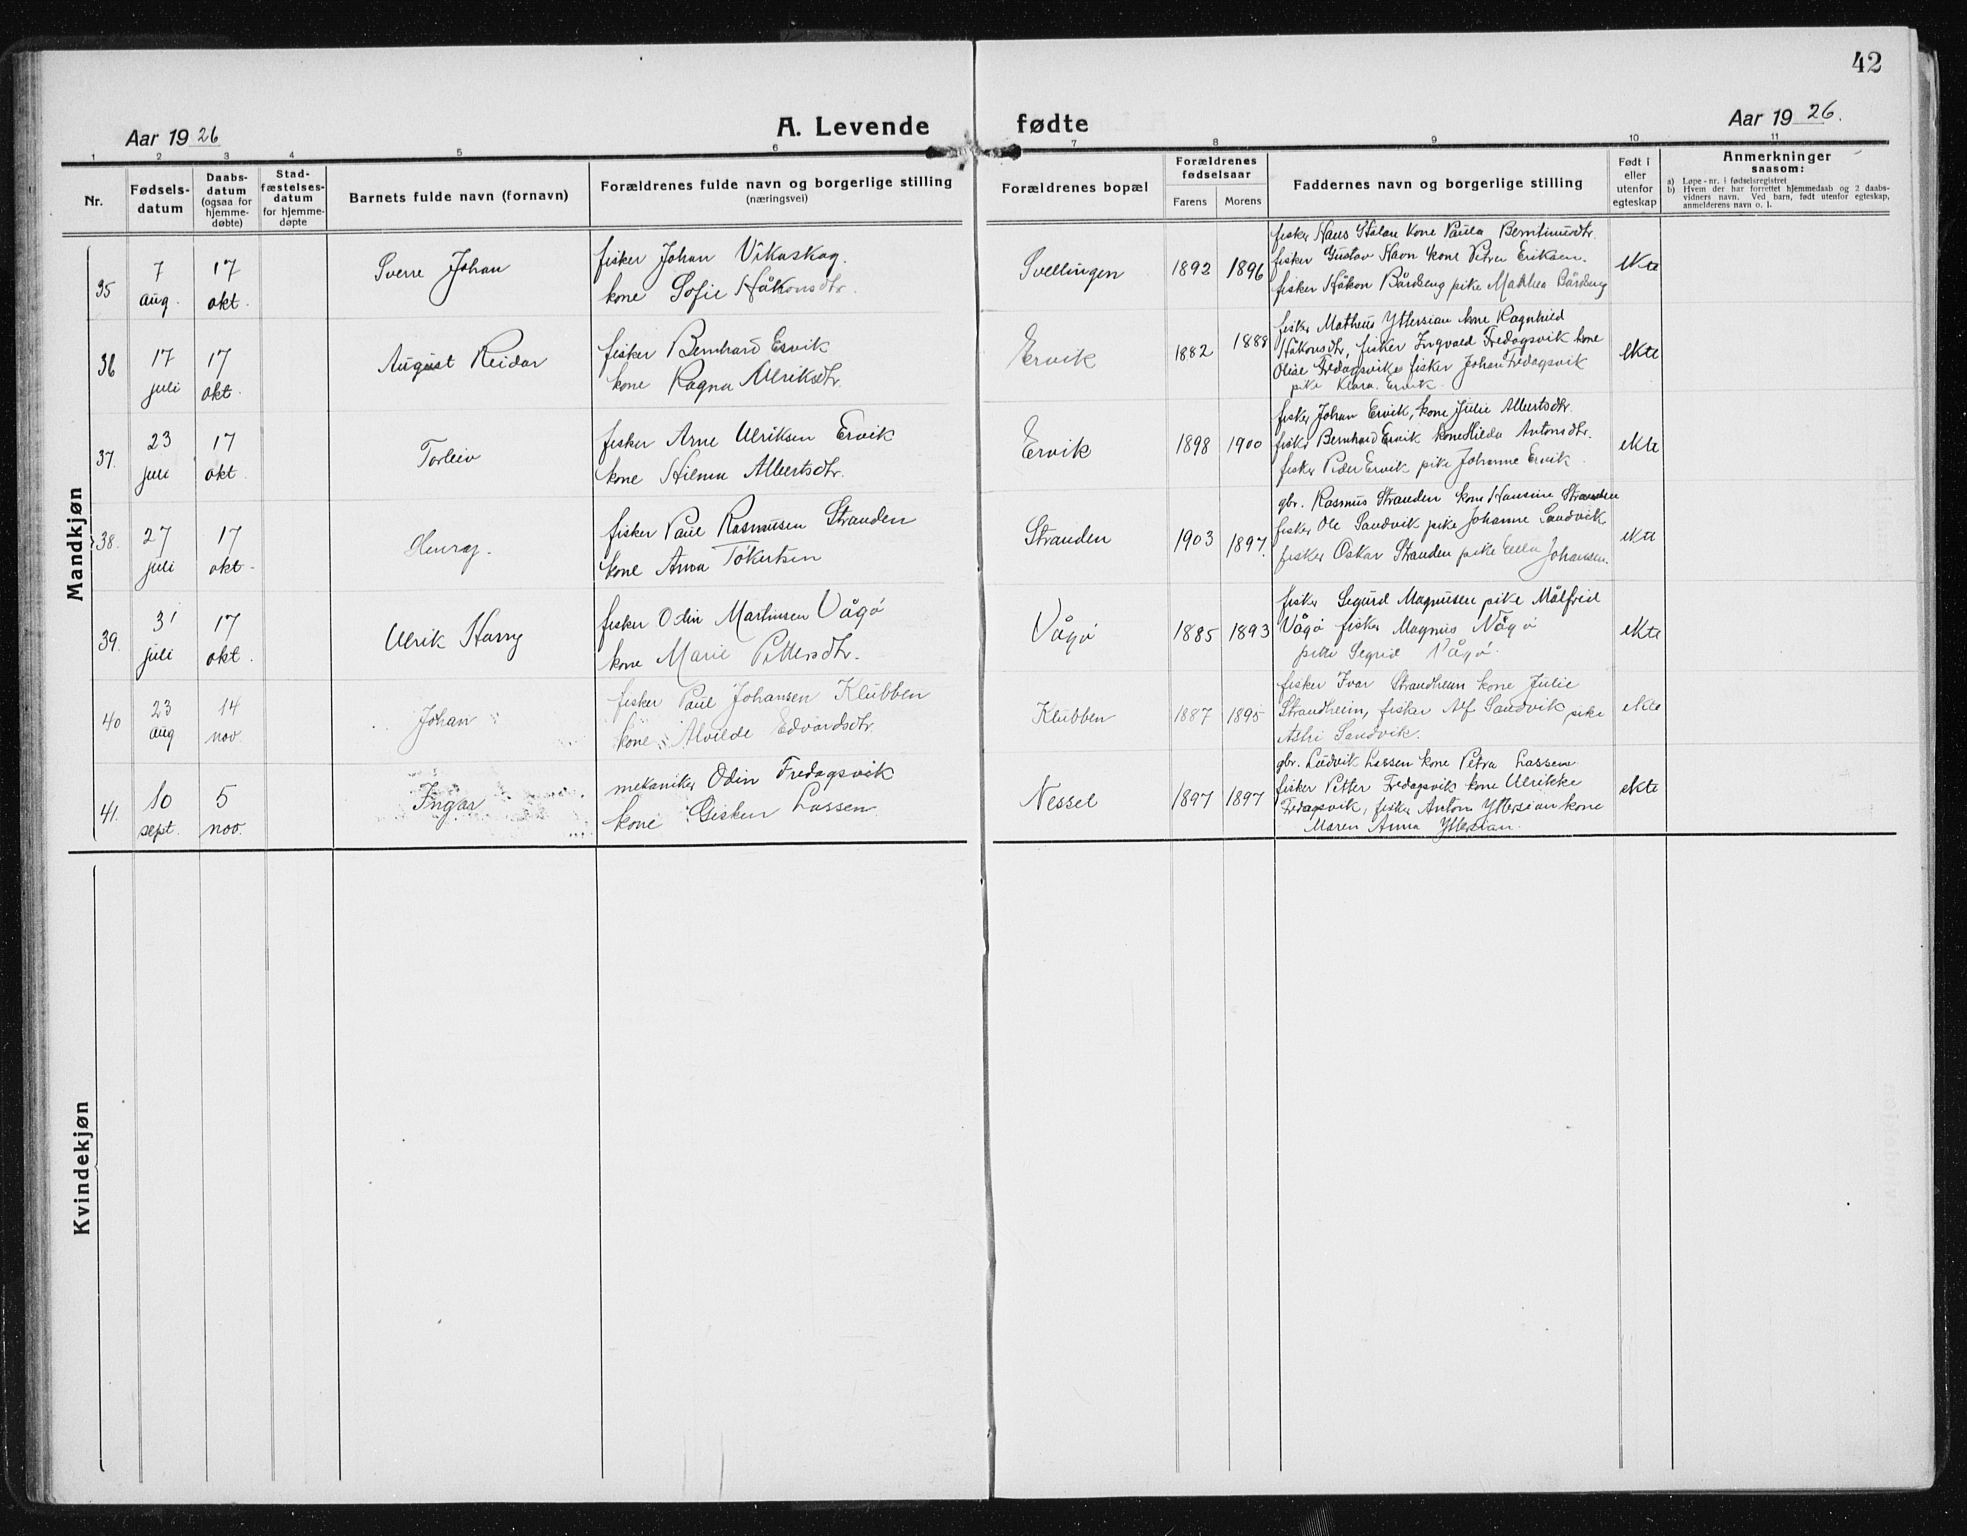 42
Aar 1926
A. Levende fødte
Aar 1926.
1 2 3 4 5 6 7 8 9 10 11
Nr.
Fødsels-
datum
Daabs-
datum
(ogsaa for
hjemme-
døbte)
Stad-
fæstelses-
datum
for hjemme-
døpte
Barnets fulde navn (fornavn)
Forældrenes fulde navn og borgerlige stilling
(næringsvei)
Forældrenes bopæl
Forældrenes
fødselsaar
Farens Morens
Faddernes navn og borgerlige stilling
Født i
eller
utenfor
egteskap
Anmerkninger
saasom:
a) Løpe-nr. i fødselsregistret
b) Hvem der har forrettet hjemmedaab og 2 daabs-
vidners navn. Ved barn, født utenfor egteskap,
anmelderens navn o. l.
Mandkjøn
35
7
aug.
17
okt.
Sverre Johan
fisker Johan Vikaskag.
kone Sofie Håkonsdtr.
Svellingen
1892 1896
fisker Hans Stølan kone Paula Berntinusdtr.
fisker Gustav Havn kone Petra Eriksen.
fisker Håkon Bårdseng pike Mathea Bårdseng
ekte
36
17
juli
17
okt.
August Reidar
fisker Bernhard Ervik
kone Ragna Ulriksdtr.
Ervik
1882 1888
fisker Matheus Yttersian kone Ragnhild
Håkonsdtr, fisker Ingvald Fredagsvik kone
Olise Fredagsvik, fisker Johan Fredagsvik
pike Klara Ervik.
ekte
37.
23
juli
17
okt.
Torleiv
fisker Arne Ulriksen Ervik
kone Hilma Albertsdtr.
Ervik
1898 1900
fisker Johan Ervik, kone Julie Albertsdtr.
fisker Bernhard Ervik kone Hilda Antonsdtr.
fisker Peder Ervik pike Johanne Ervik.
ekte
38.
27
juli
17
okt.
Henray.
fisker Paul Rasmusen Stranden
kone Anna Tøkertsen
Stranden
1903 1897.
gbr. Rasmus Stranden kone Hansine Stranden
fisker Ole Sandvik pike Johanne Sandvik
fisker Oskar Stranden pike Ella Johansen.
ekte
39.
31
juli
17
okt.
Ulrik Harry
fisker Odin Martinsen Vågø
kone Marie Pettersdtr.
Vågø
1885 1893
fisker Sigurd Magnusen pike Målfrid
Vågø fisker Magnus Vågø
pike Sigrid Vågø.
ekte
40
23
aug
14
nov.
Johan
fisker Paul Johansen Klubben
kone Alvilde Edvardsdtr.
Klubben
1887 1895
fisker Ivar Strandheim kone Julie
Strandheim, fisker Alf Sandvik, pike
Astri Sandvik.
ekte
41.
10
sept.
5
nov.
Ingar
mekaniker Odin Fredagsvik
kone Gisken Lassen
Nesset
1897 1897
gbr. Ludvik Lassen kone Petra Lassen
fisker Petter Fredagsvik kone Ulrikke
Fredagsvik, fisker Anton Yttersian kone
Maren Anna Yttersian.
ekte
Kvindekjøn